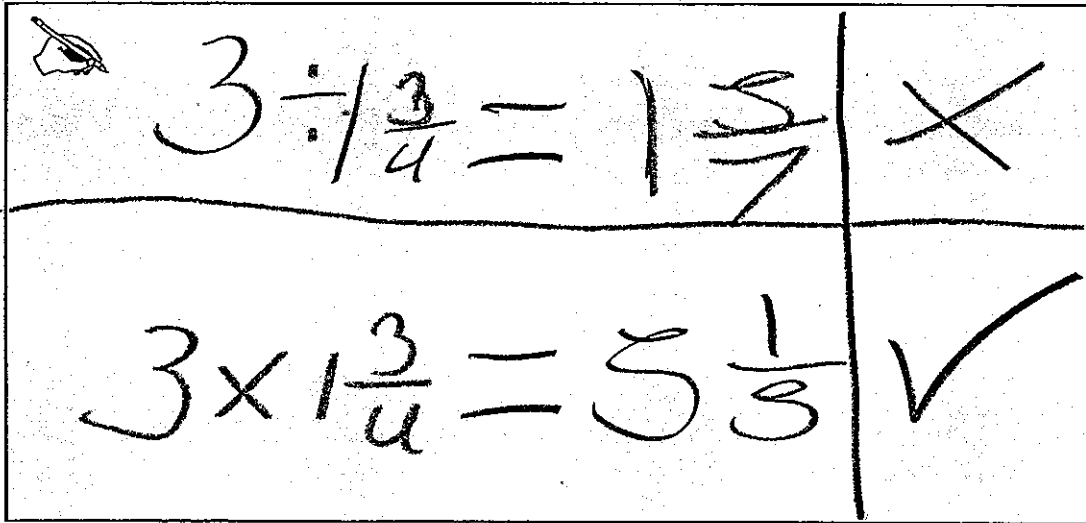 3 ÷ 1 3/4 = 1 5/7 ✗
3 × 1 3/4 = 5 1/5 ✓